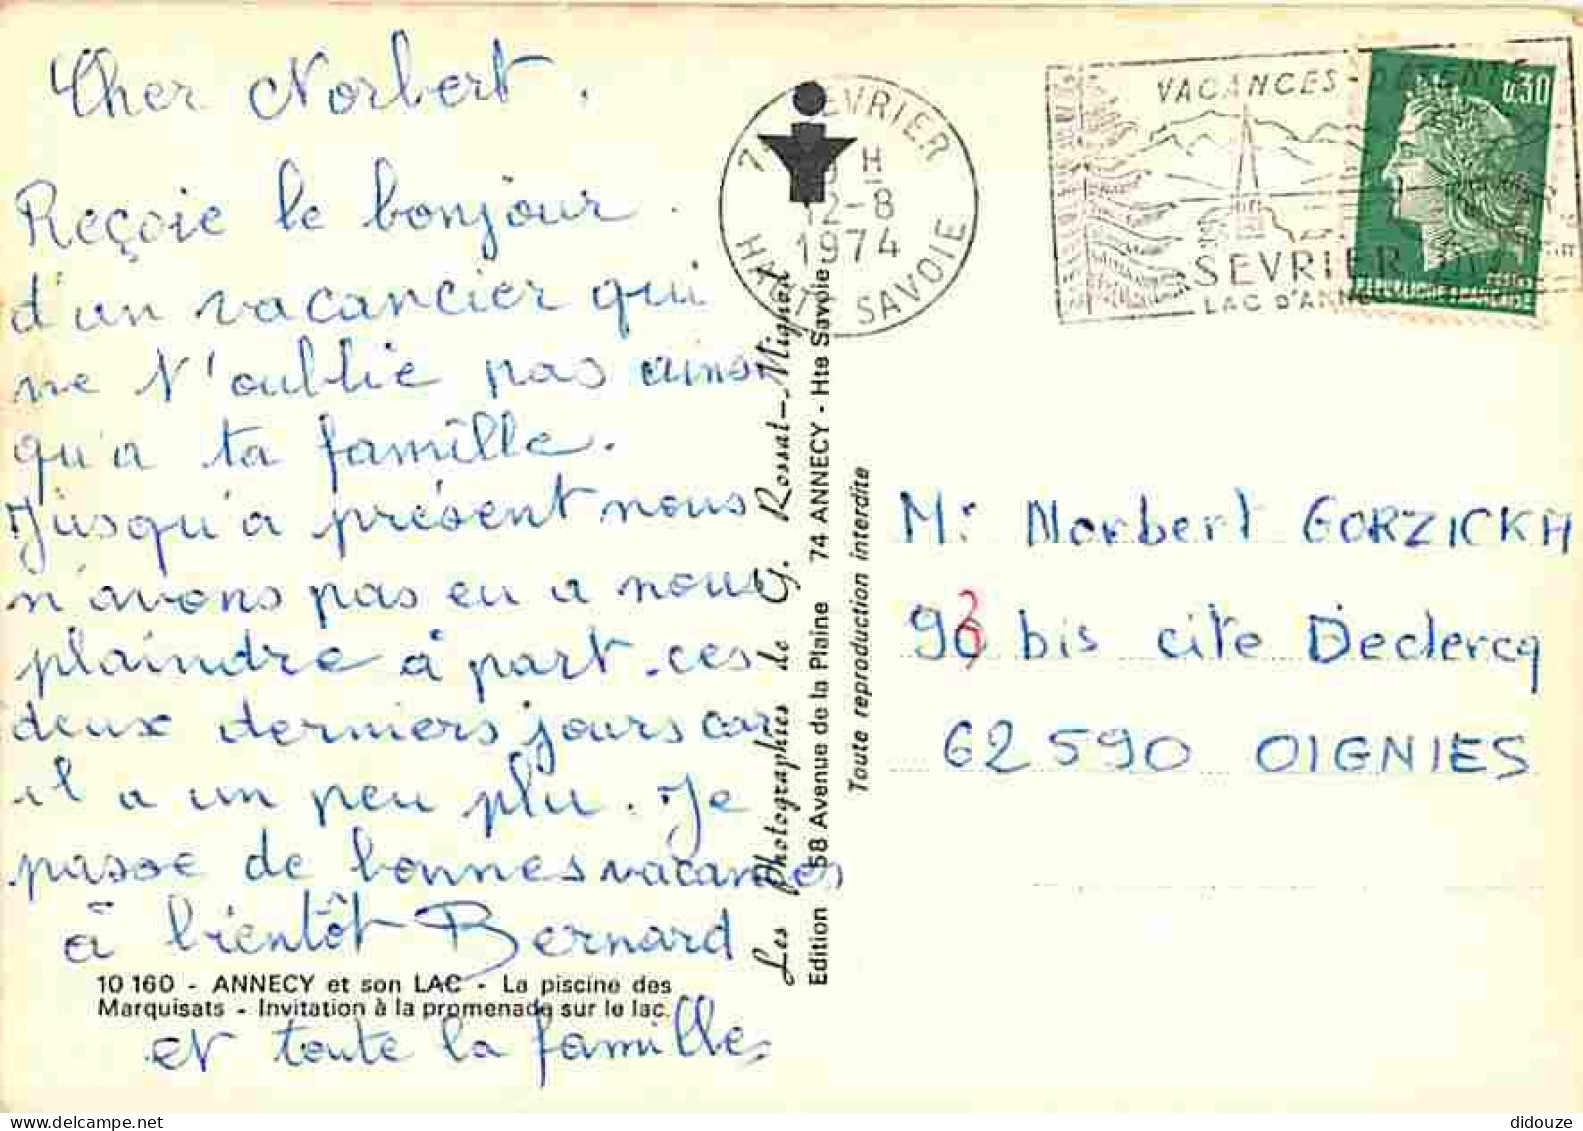 Cher Norbert.
Reçoie le bonjour
d'un vacancier qui
ne t'oublie pas ainsi
qu'a ta famille.
Jusqu'a présent nous
n'avons pas eu a nous
plaindre à part ces
deux derniers jours car
il a un peu plu. Je
passe de bonnes vacances
à bientôt Bernard
et toute la famille
10 160 - ANNECY et son LAC - La piscine des
Marquisats - Invitation à la promenade sur le lac.
Les Photographies de G. Rossat-Mignod
Edition 58 Avenue de la Plaine 74 ANNECY - Hte Savoie
Toute reproduction interdite
SEVRIER
H
12-8
1974
SAVOIE
VACANCES - DETENTE
SEVRIER
LAC D'ANNE
0,30
Mr Norbert GORZICKA
93 bis cite Declercq
62590 OIGNIES
didouze